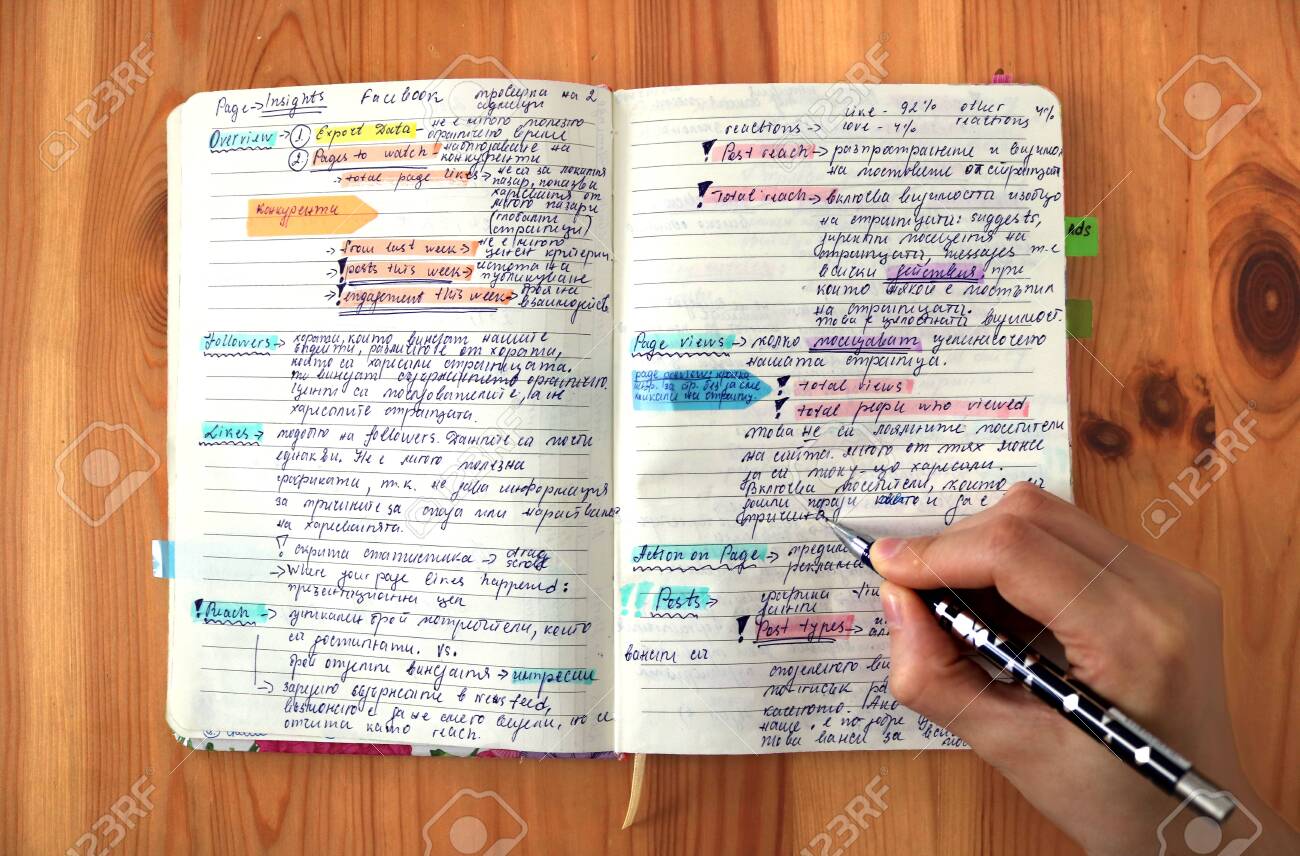 Page → Insights Facebook проверка на 2 седмици
Overview → ① Export Data - не е много полезно
ограничено време
② Pages to watch - наблюдаване на
конкуренти
→ total page likes → не са за локалния
пазар, показва
харесвания от
много пазари
(глобални
страници)
Конкуренти
→ from last week → не е много
ценен критерий
→ ! posts this week →
публикуване
→ ! engagement this week → броя на
взаимодейств.
Followers → хората, които виждат нашите
ъпдейти, различно е от хората,
които са харесали страницата.
те виждат съдържанието органично.
Ценни са последователите, а не
харесалите страницата.
Likes → подобно на followers. Данните са почти
еднакви. Не е много полезна
графиката, т.к. не дава информация
за причините за спада или нарастване
на харесванията.
! скрита статистика → drag
scroll
→ Where your page likes happened:
презентационна цел
! Reach → уникален брой потребители, които
са достигнати. vs.
брой отделни виждания → импресии
→ заредено съдържание в News feed,
възможно е да не са го видели, но се
отчита като reach.
like - 92% other
reactions → love - 4% reactions 4%
! Post reach → разпространение и видимо
на постовете от страницата
! Total reach → включва видимостта изобщо
на страницата: suggests,
директни посещения на
страницата, messages т.е
всички действия при
които някой е постъпил
на страницата.
това е цялостната видимост.
Ads
Page views → колко посещават целенасочено
нашата страница.
page preview: кратка
инфр. за стр. без да сме
кликали на страниц.
! total views
! total people who viewed
това не са лоялните посетители
на сайта. много от тях може
да са току-що харесали.
Включва посетители, които са
дошли поради каквато и да е
причина
Action on Page →
реклама
!! Posts → графика
! Post types →
важни са
споделяното
това важи за